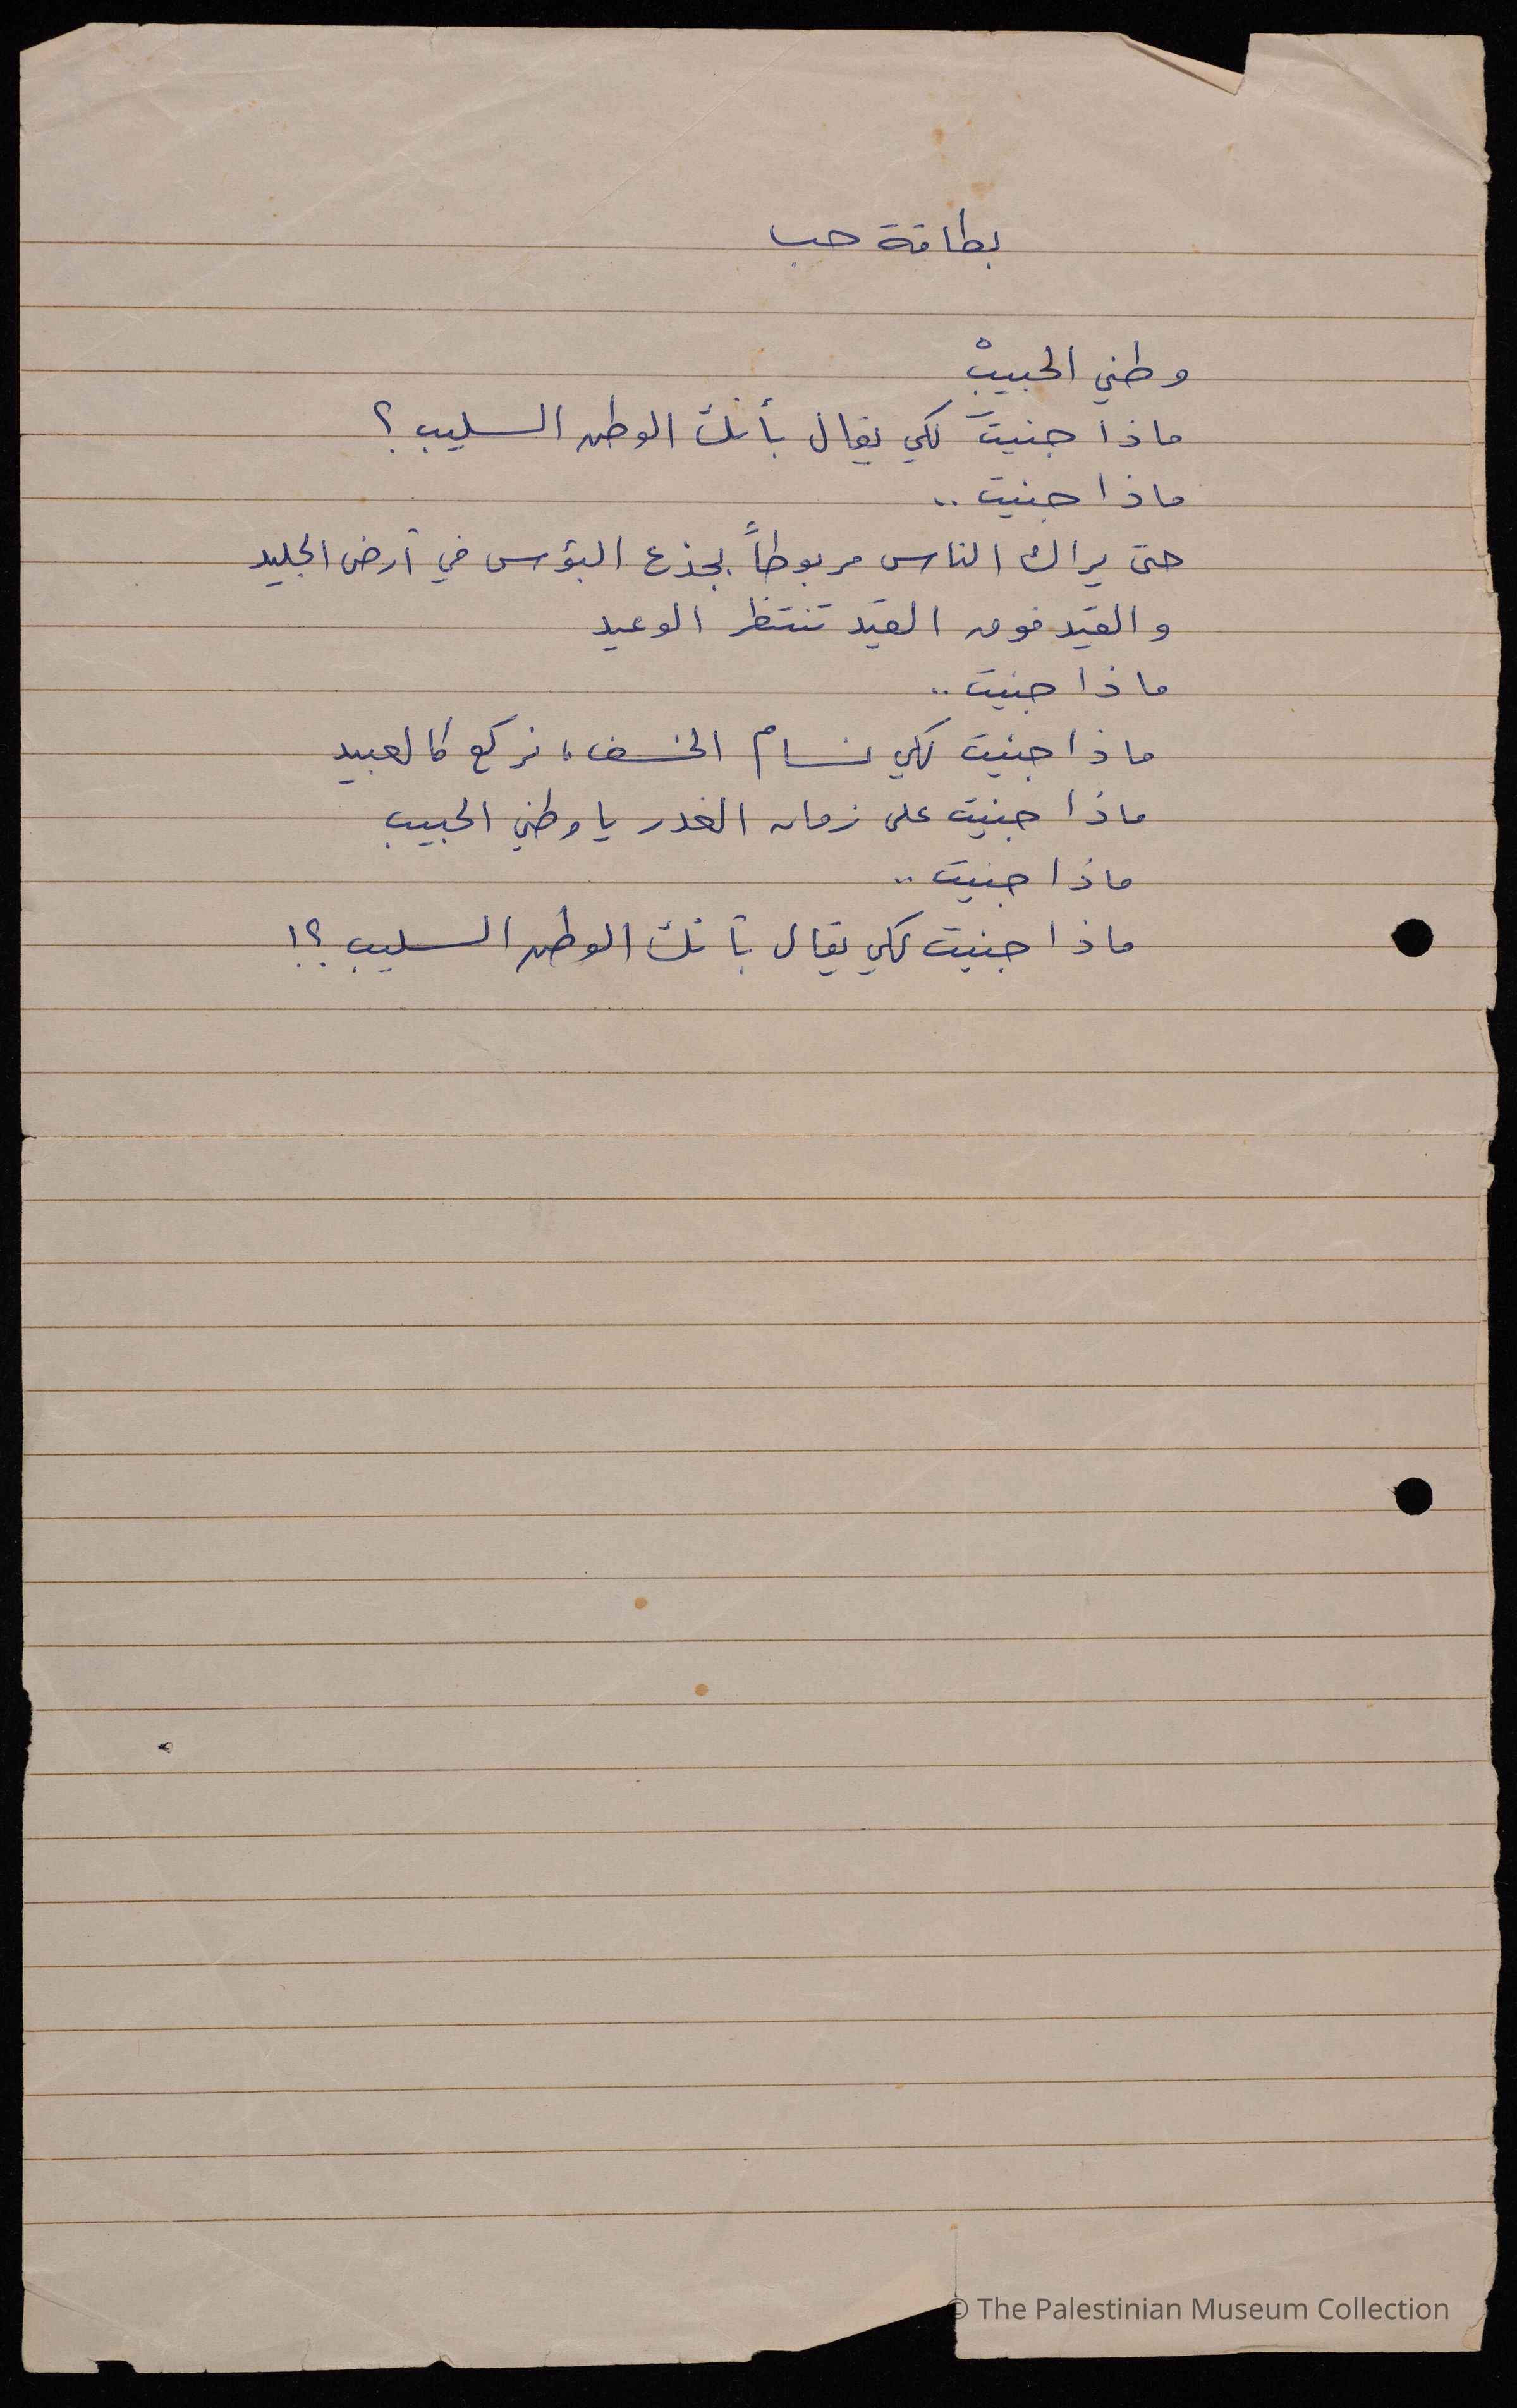 بطاقة حب
وطني الحبيبْ
ماذا جنيتَ لكي يقال بأنك الوطن السليب ؟
ماذا جنيت ..
حتى يراك الناس مربوطاً بجذع البؤس في أرض الجليد
والقيد فوق القيد تنتظر الوعيد
ماذا جنيت ..
ماذا جنيت لكي نسام الخسف ، نركع كالعبيد
ماذا جنيت على زمان الغدر يا وطني الحبيب
ماذا جنيت ..
ماذا جنيت لكي يقال بأنك الوطن السليب ؟!
© The Palestinian Museum Collection